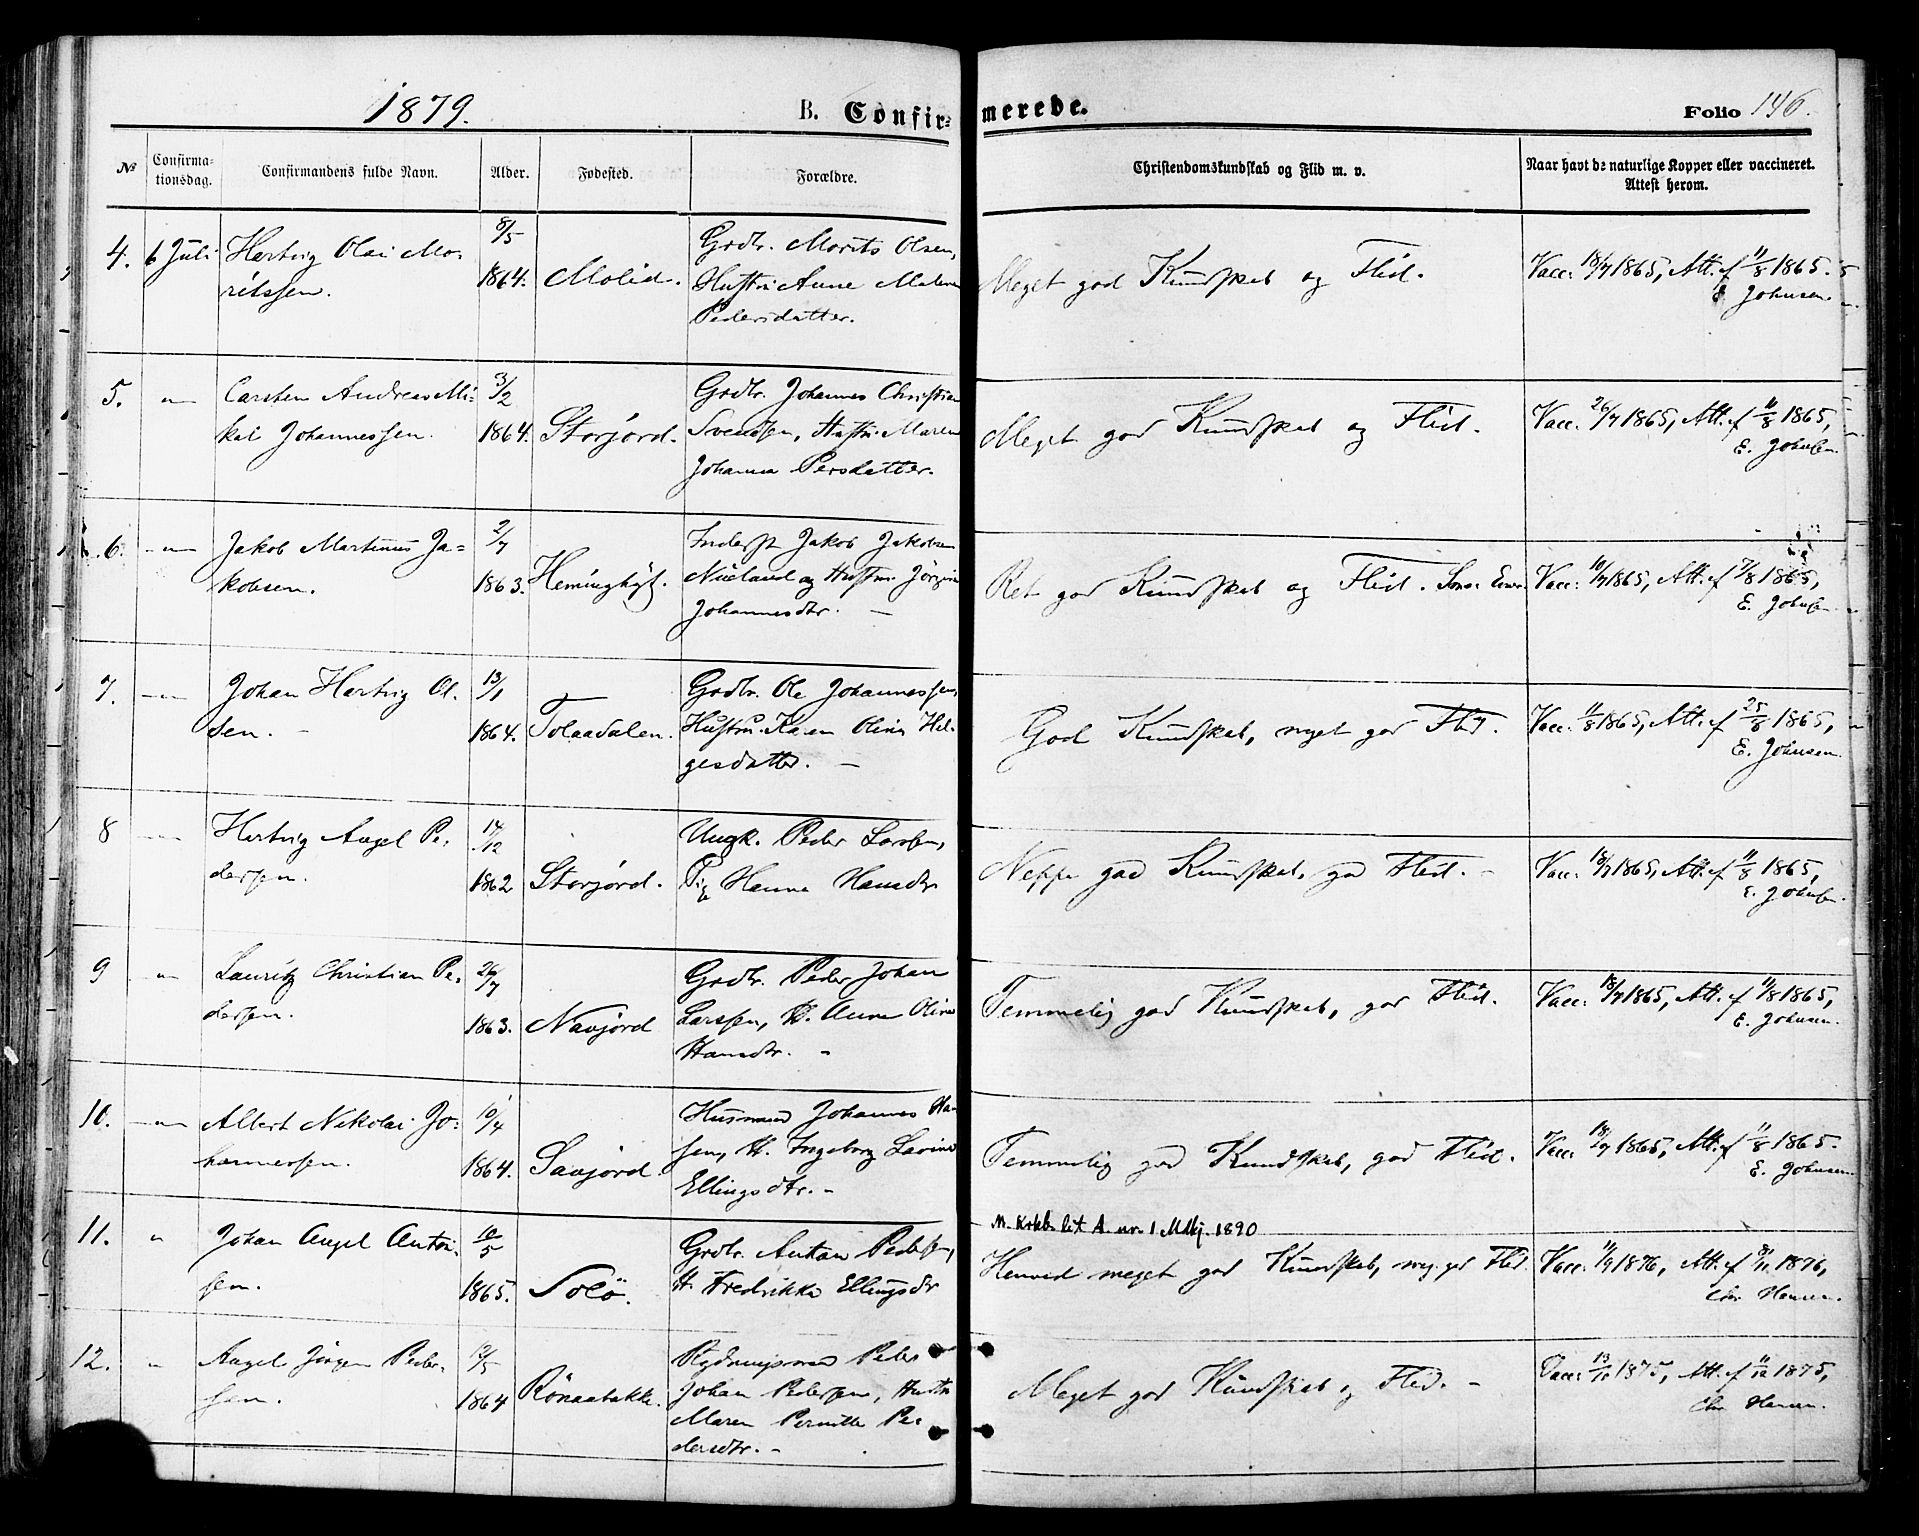 1879.
B. Confir-
merede.
Folio 146.
№
Confirma-
tionsdag.
Confirmandens fulde Navn.
Alder.
Fødested.
Forældre.
Christendomskundskab og Flid m. v.
Naar havt de naturlige Kopper eller vaccineret.
Attest herom.
4. 6 Juli Hertvig Olai Mo-
ritssen.
8/5
1864. Molid.
Grdbr. Morits Olsen,
Hustru Anne Malene
Pedersdatter.
Meget god Kundskab og Flid.
Vacc. 18/7 1865, Att. af 11/8 1865.
E. Johnsen.
5. — Carsten Andreas Mi-
kal Johannessen.
3/2
1864. Storjord.
Grdbr. Johannes Christian
Svendsen, Hustru Maren
Johanna Persdatter.
Meget god Kundskab og Flid.
Vacc. 26/7 1865, Att. af 11/8 1865,
E. Johnsen.
6. — Jakob Martinus Ja-
kobsen.
2/7
1863.
Inderst Jakob Jakobsen
og Hustru Jörgine
Johannesdtr. —
Ret god Kundskab og Flid.
Vacc. 10/7 1865, Att. af 7/8 1865,
E. Johnsen
7. — Johan Hertvig Ol-
sen. —
13/1
1864. Tolaadalen.
Grdbr. Ole Johannessen,
Hustru Karen Olina Hel-
gesdatter. —
God Kundskab, meget god Flid.
Vacc. 11/8 1865, Att. af 25/8 1865,
E. Johnsen.
8 — Hertvig Angel Pe-
dersen.
14/12
1862 Storjord.
Ungk. Peder Larsen,
Pige Hanna Hansdtr
Neppe god Kundskab, god Flid. —
Vacc. 18/7 1865, Att. af 11/8 1865,
E. Johnsen.
9 — Lauritz Christian Pe-
dersen.
26/7
1863. Navjord
Grdbr. Peder Johan
Larssen, H. Anne Olina
Hansdtr. —
Temmelig god Kundskab, god Flid.
Vacc. 18/7 1865, Att. af 11/8 1865,
E. Johnsen.
10. — Albert Nikolai Jo-
hannessen.
10/4
1864. Savjord.
Husmand Johannes Han-
sen, H. Ingeborg Lavina
Ellingsdtr. —
Temmelig god Kundskab, god Flid.
Vacc. 18/7 1865, Att. af 11/8 1865.
E. Johnsen
11. " Johan Angel Anton-
sen.
10/5
1865. Solö.
Grdbr. Anton Pedersen,
H. Fredrikke Ellingsdtr
M. Krkb. Lit A. nr. 1 Mdkj. 1890
Henved meget god Kundskab, meg. god Flid.
Vacc. 11/9 1876, Att. af 1876,
Chr Hansen.
12. " Angel Jörgen Peder-
sen.
12/5
1864 Rönaabakke.
Rydningsmand Peder
Johan Pedersen, Hustru
Maren Pernille Pe-
dersdtr. —
Meget god Kundskab og Flid. —
Vacc. 13/10 1875, Att. af 11/12 1875,
Chr Hansen.